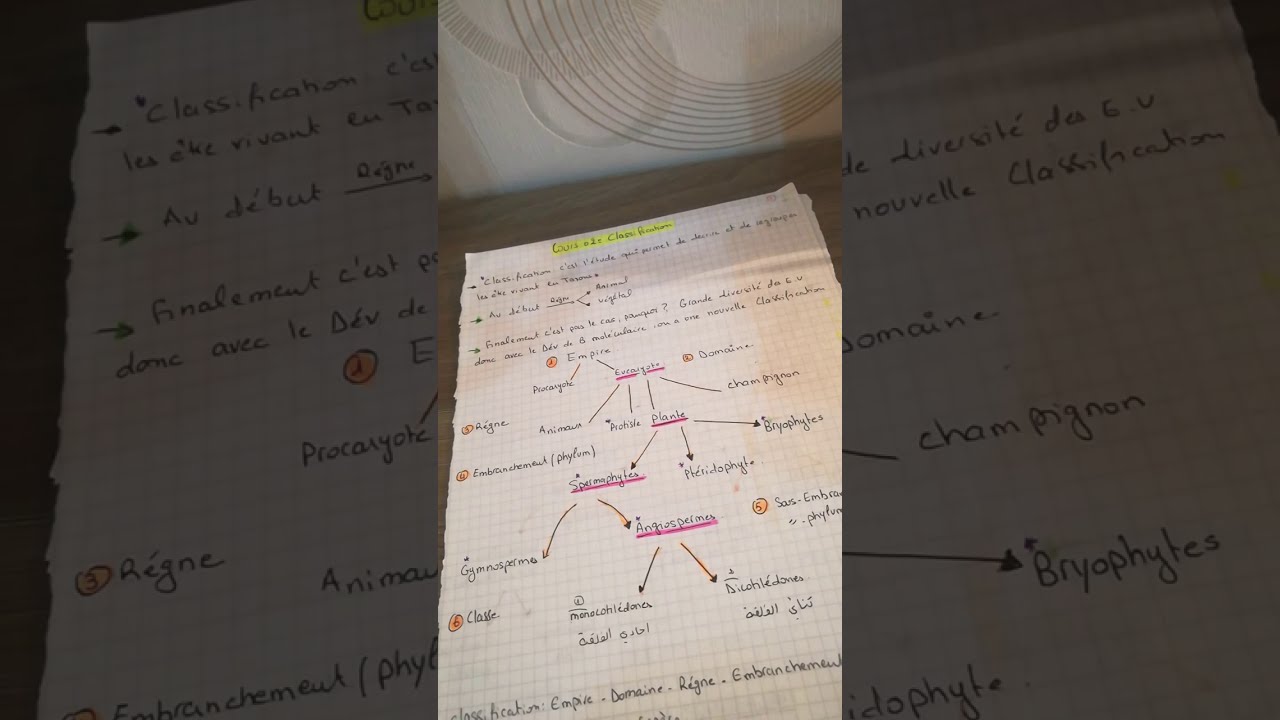 Cours 02: Classification
→ "Classification c'est l'étude qui permet de décrire et de regrouper
les être vivant en Taxons.
→ Au début Règne Animal
végétal
→ Finalement c'est pas le cas, pourquoi? Grande diversité des E.V
donc avec le Dév de B moléculaire, on a une nouvelle Classification
① Empire
Procaryote Eucaryote ② Domaine
champignon
③ Régne Animaux *Protiste Plante *Bryophytes
④ Embranchement (phylum)
*Spermaphytes *Ptéridophyte
⑤ Sous-Embran
〃-phylum
*Gymnospermes *Angiospermes
⑥ Classe ① monocotylédones ② Dicotylédones
احادي الفلقة ثنائي الفلقة
Classification: Empire - Domaine - Régne - Embranchement